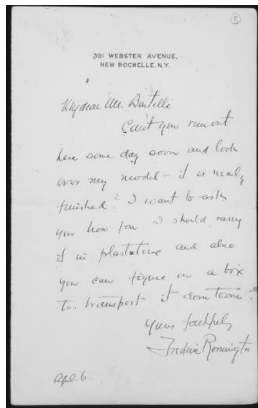 5
301 WEBSTER AVENUE.
NEW ROCHELLE, N.Y.
My dear Mr.
Can't you run out
here some day soon and look
over my model - it is nearly
finished? I want to ask
you how far I should carry
it in plastaline and also
you can figure on a box
to transport it down town.
Yours faithfully
Frederic Remington
Apl. 6.